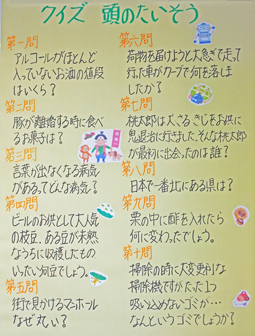 クイズ 頭のたいそう
第一問
アルコールがほとんど
入っていないお酒の値段
はいくら?
第二問
豚が離婚する時に食べ
るお菓子は?
第三問
言葉が出なくなる病気
がある。てどんな病気?
第四問
ビールのお供として大人気
の枝豆、ある豆が未熟
なうちに収穫したもの
いったい何豆でしょう。
第五問
街で見かけるマンホール
なぜ丸い?
第六問
荷物を届けようと大急ぎで走って
行った車がカーブで何を落としま
したか?
第七問
桃太郎は犬、さる、きじをお供に
鬼退治に行きました。そんな桃太郎
が最初に出会ったのは誰?
第八問
日本で一番北にある県は?
第九問
栗の中に酢を入れたら
何に変わったでしょう。
第十問
掃除の時に大変便利な
掃除機ですがたった1つ
吸い込めないゴミが…
なんというゴミでしょうか?